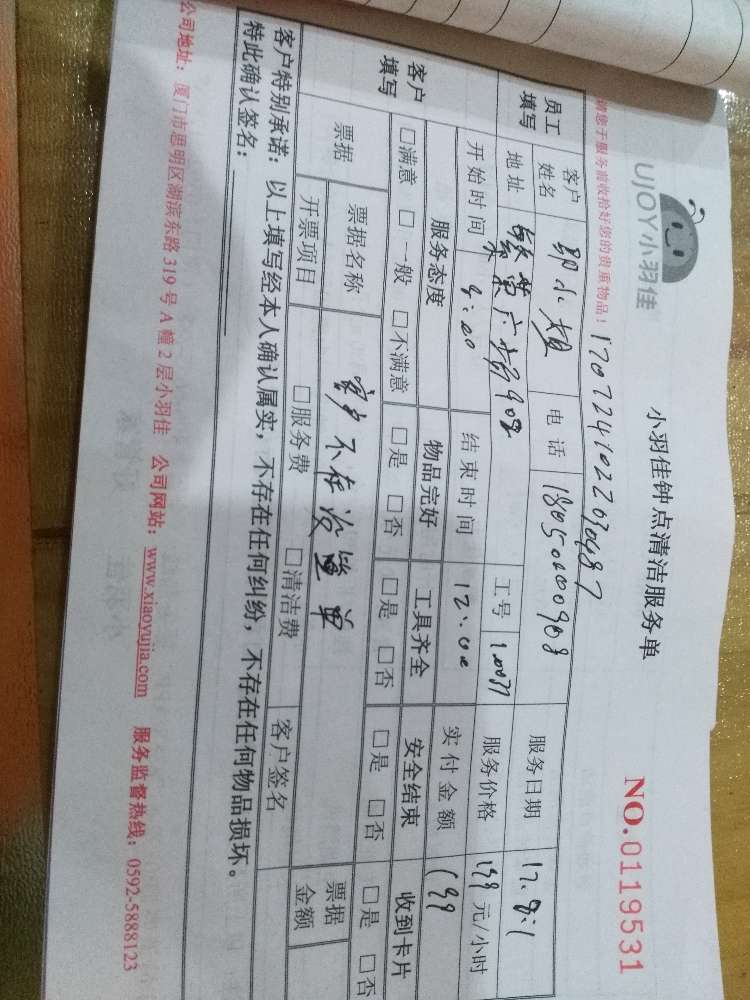 UJOY小羽佳
小羽佳钟点清洁服务单
NO.0119531
请您于服务前收拾好您的贵重物品!
员工填写 客户姓名 郭小姐 电话 18050000908 服务日期 17.9.1
地址 908 工号 服务价格 199 元/小时
开始时间 9:00 结束时间 12:00 实付金额 199
客户填写 服务态度 物品完好 工具齐全 安全结束 收到卡片
□满意 □一般 □不满意 □是 □否 □是 □否 □是 □否 □是 □否
票据 票据名称 客户不在没签单 票据金额
开票项目 □服务费 □清洁费 客户签名
客户特别承诺：以上填写经本人确认属实，不存在任何纠纷，不存在任何物品损坏。
特此确认签名：
公司地址：厦门市思明区湖滨东路319号A幢2层小羽佳 公司网站：www.xiaoyujia.com 服务监督热线：0592-5888123